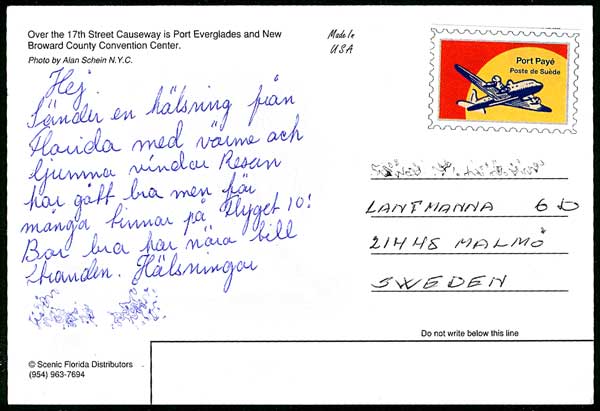 Over the 17th Street Causeway is Port Everglades and New
Broward County Convention Center.
Photo by Alan Schein N.Y.C.
Made In
USA
Port Payé
Poste de Suède
Hej.
Sänder en hälsning från
Florida med värme och
ljumma vindar Resan
har gått bra men för
många timmar på flyget 10!
Bor bra har nära till
stranden. Hälsningar
LANTMANNA 6 D
214 48 MALMÖ
SWEDEN
Do not write below this line
© Scenic Florida Distributors
(954) 963-7694